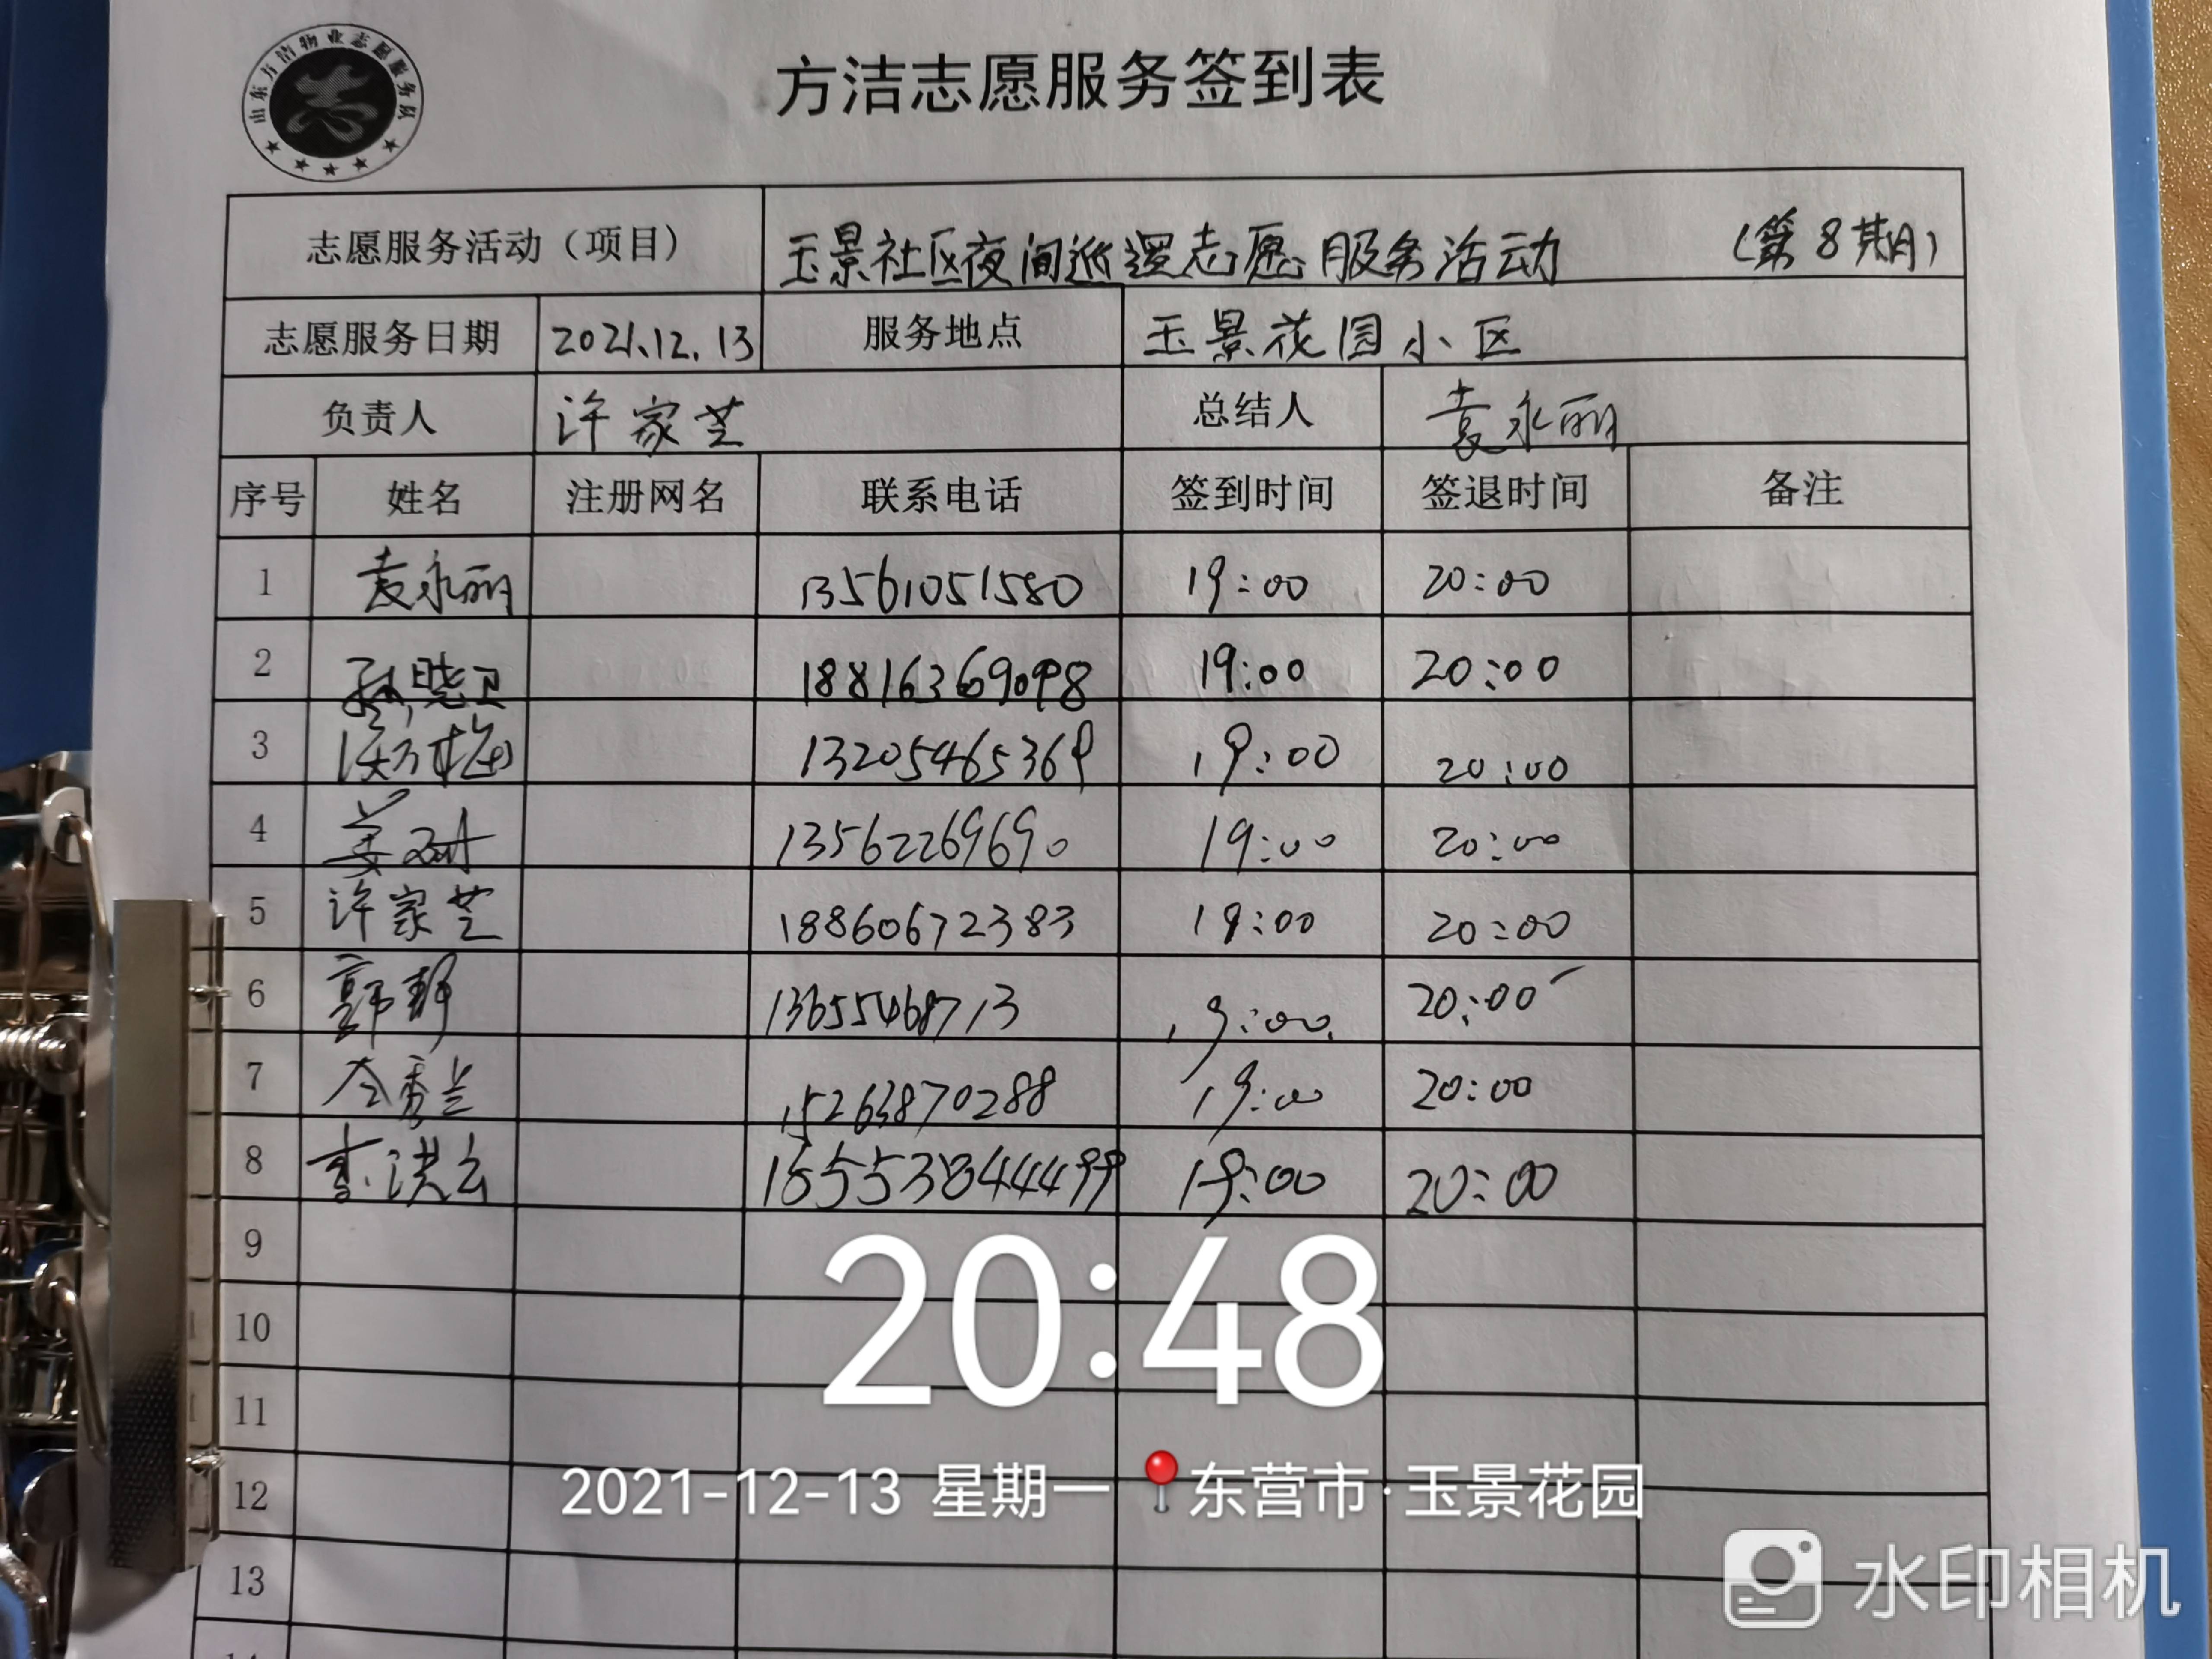 山东方洁物业志愿服务队
方洁志愿服务签到表
志愿服务活动（项目） 玉景社区夜间巡逻志愿服务活动 （第8期）
志愿服务日期 2021.12.13 服务地点 玉景花园小区
负责人 许家芝 总结人 袁永丽
序号 姓名 注册网名 联系电话 签到时间 签退时间 备注
1 袁永丽 13561051580 19:00 20:00
2 孙晓卫 18816369098 19:00 20:00
3 13205465369 19:00 20:00
4 13562269690 19:00 20:00
5 许家芝 18860672383 19:00 20:00
6 郭静 13655468713 19:00 20:00
7 秀兰 15263870288 19:00 20:00
8 李洪云 19:00 20:00
9
10
11
12
13
20:48
2021-12-13 星期一 东营市·玉景花园
水印相机